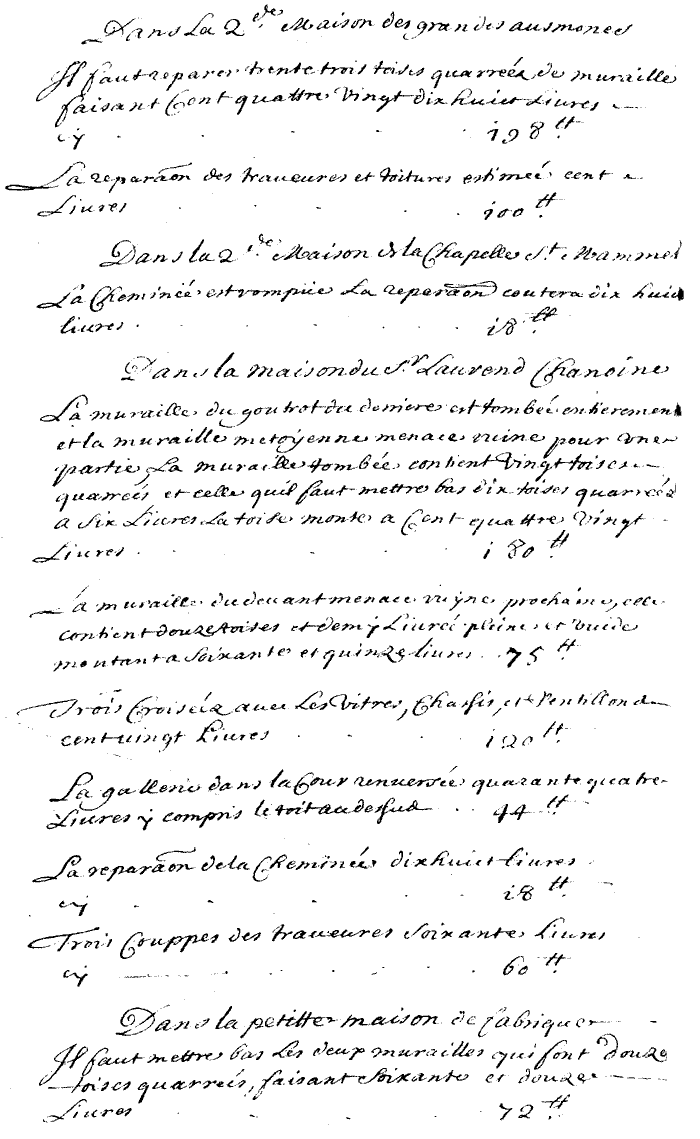 Dans La 2.de Maison des grandes ausmones
Il faut reparer trente trois toises quarreéz de muraille
faisant Cent quattre vingt dix huict Livres
cy . . . . 198 tt.
La reparaōn des traveures et toitures estimeé cent
Livres . . . 100 tt.
Dans la 2.de Maison de la Chapelle St. Mammes
La Cheminéé est rompüe La reparaōn coutera dix huict
livres . . . 18 tt.
Dans la maison du Sr. Laurend Chanoine
La muraille du goutrot du derriere est tombéé entierement
et la muraille metoÿenne menace ruine pour une
partie, La muraille tombéé contient vingt toises
quarreés et celle quil faut mettre bas dix toises quarreéz
a Six Livres La toise monte a Cent quattre vingt
Livres . . . 180 tt.
La muraille du devant menace ruÿne prochaine, elle
contient douze toises et demÿ Livreé pleine et vuide
montant a soixante et quinze livres . . 75 tt.
Trois Croiséés avec Les Vitres, Chassis, et Ventillond
cent vingt Livres . . . 120 tt.
La gallerie dans la Cour renverséé quarante quatre
Livres ÿ compris le toit au dessus . . 44 tt.
La reparaōn de la Cheminéé dix huict livres
cy . . . . 18 tt.
Trois Couppes des traveures Soixante Livres
cy . . . 60 tt.
Dans la petitte maison de fabrique
Il faut mettre bas Les deux murailles qui font douze
toises quarreés, faisant Soixante et douze
Livres . . . 72 tt.